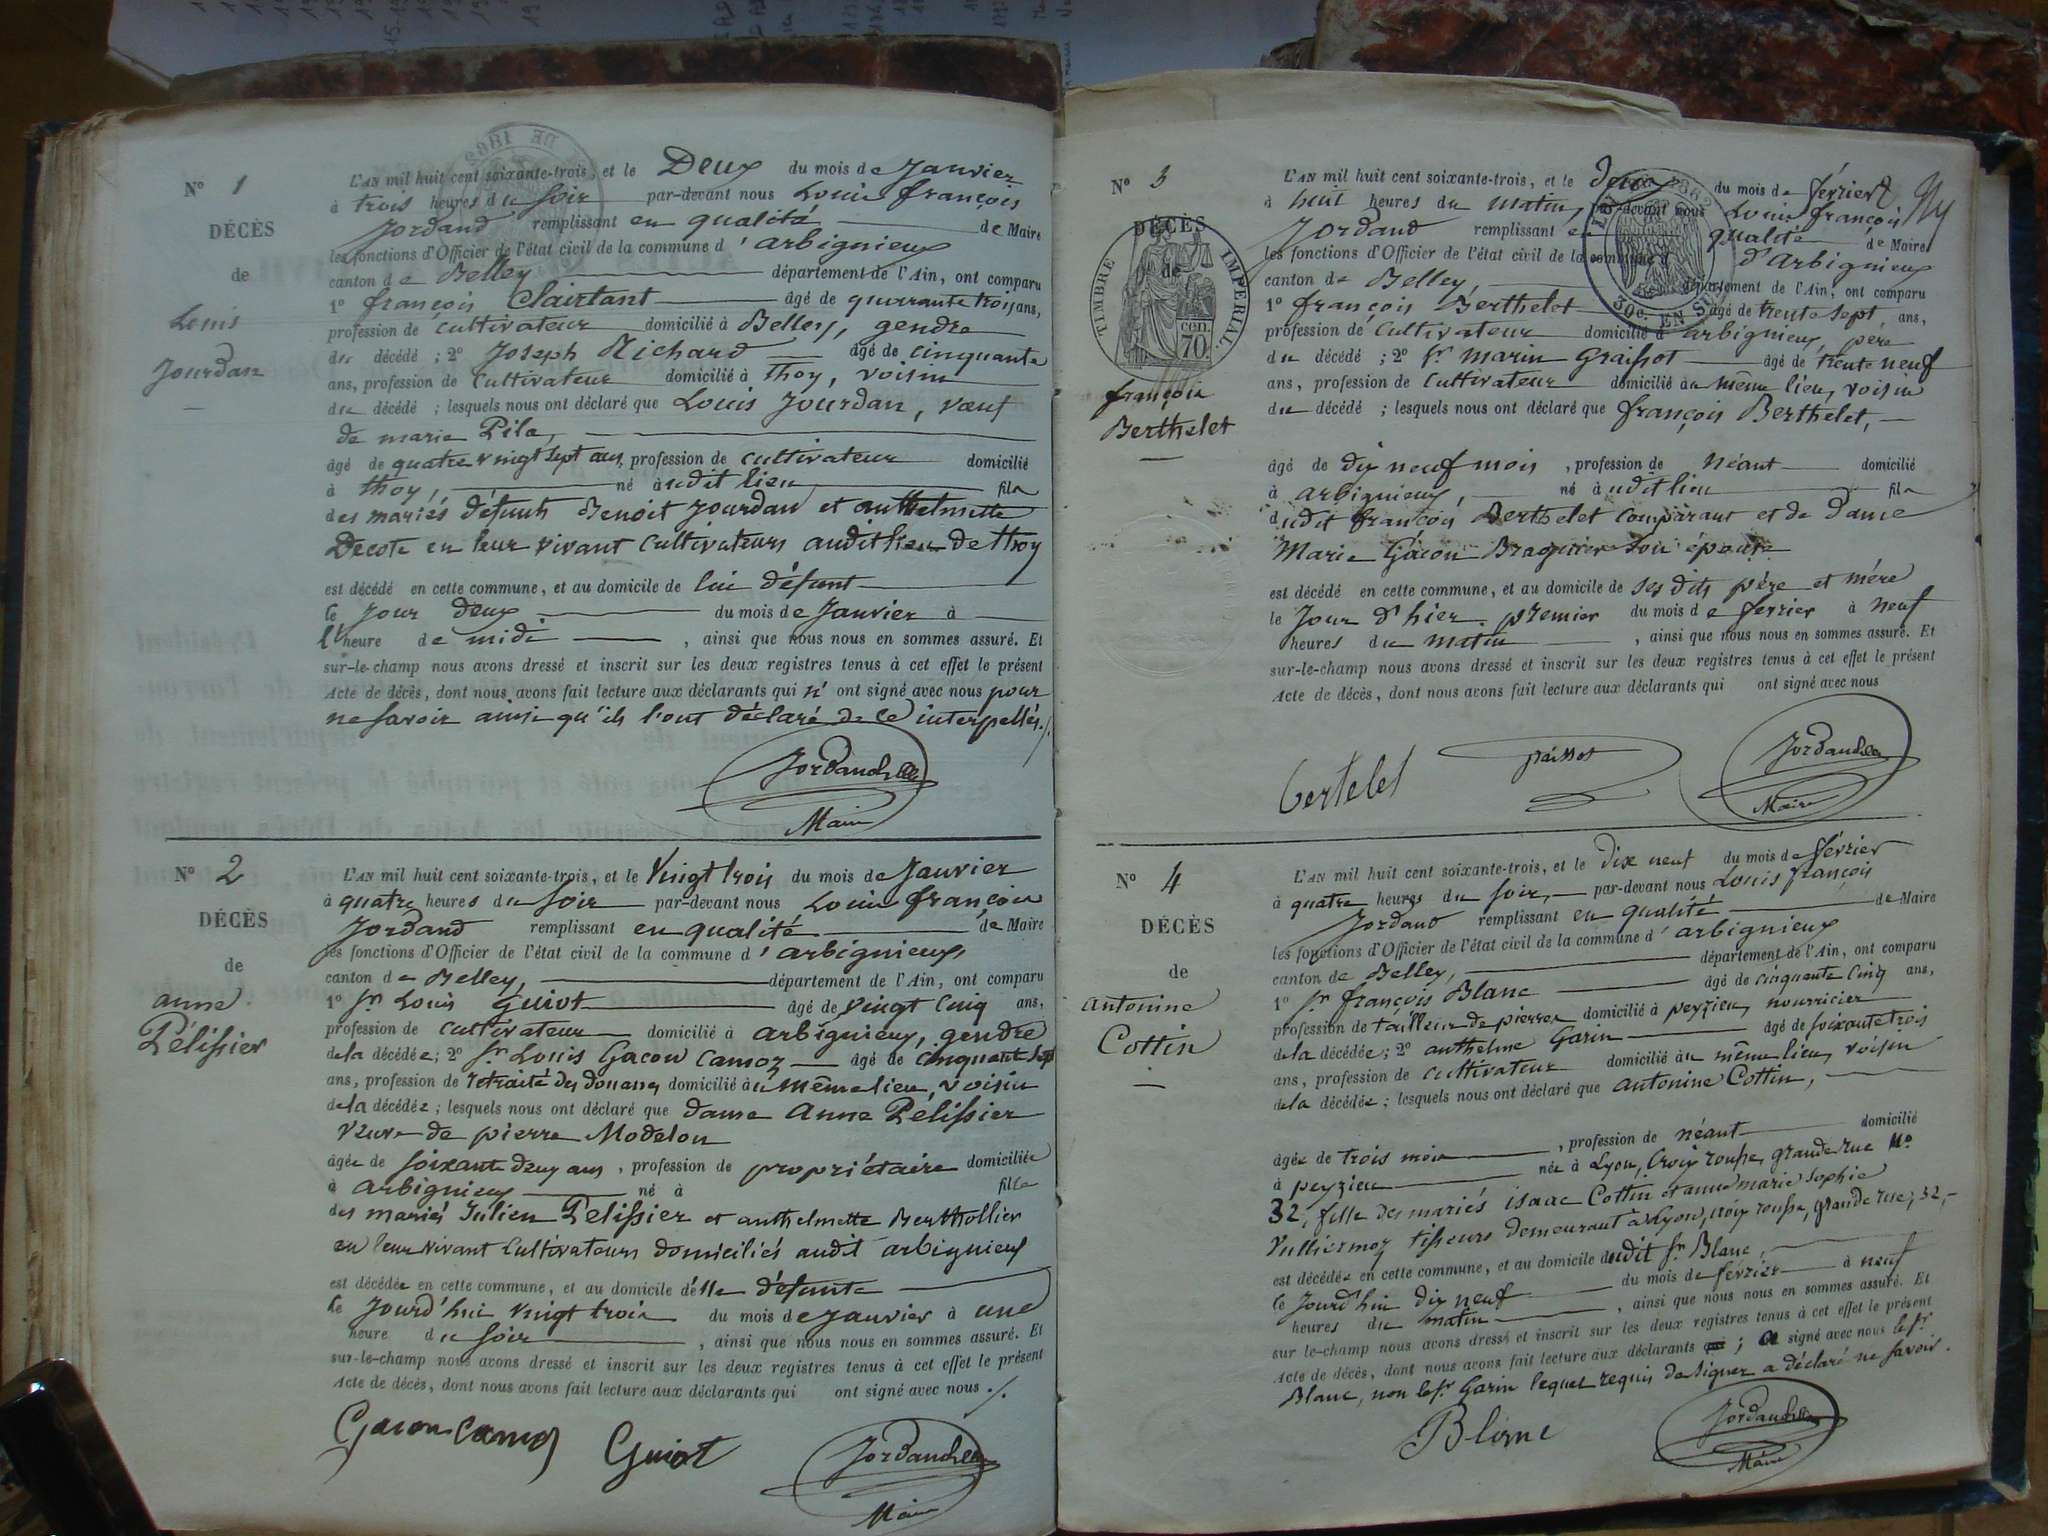 N° 1
DÉCÈS
de
Louis
Jourdan
L'AN mil huit cent soixante-trois, et le Deux du mois de Janvier
à trois heures du soir par-devant nous Louis françois
Jordand remplissant en qualité de Maire
les fonctions d'Officier de l'état civil de la commune d'arbignieux
canton de Belley département de l'Ain, ont comparu
1° françois Clairtant âgé de quarrante trois ans,
profession de cultivateur domicilié à Belley, gendre
du décédé ; 2° Joseph Richard âgé de cinquante
ans, profession de cultivateur domicilié à thoy, voisin
du décédé ; lesquels nous ont déclaré que Louis Jourdan, veuf
de marie Pila,
âgé de quatre vingt sept ans, profession de cultivateur domicilié
à thoy, né audit lieu fils
des mariés défunts Benoit Jourdan et anthelmette
Decote en leur vivant cultivateurs audit lieu de thoy
est décédé en cette commune, et au domicile de lui défunt
le Jour deux du mois de Janvier à
l'heure de midi , ainsi que nous nous en sommes assuré. Et
sur-le-champ nous avons dressé et inscrit sur les deux registres tenus à cet effet le présent
Acte de décès, dont nous avons fait lecture aux déclarants qui n'ont signé avec nous pour
ne savoir ainsi qu'ils l'ont déclaré de ce interpellés./.
Maire
N° 2
DÉCÈS
de
anne
Pélissier
L'AN mil huit cent soixante-trois, et le Vingt trois du mois de Janvier
à quatre heures du soir par-devant nous Louis françois
Jordand remplissant en qualité de Maire
les fonctions d'Officier de l'état civil de la commune d'arbignieux
canton de Belley, département de l'Ain, ont comparu
1° Sr Louis Guiot âgé de vingt cinq ans,
profession de cultivateur domicilié à arbignieux, gendre
de la décédée ; 2° Sr Louis Gacon Camoz âgé de cinquante sept
ans, profession de retraité des douanes domicilié au même lieu, voisin
de la décédée ; lesquels nous ont déclaré que dame Anne Pélissier
veuve de pierre Modelon
âgée de soixante deux ans, profession de propriétaire domiciliée
à arbignieux né à fille
des mariés Julien Pelissier et anthelmette Berthollier
en leur vivant cultivateurs domiciliés audit arbignieux
est décédée en cette commune, et au domicile d'elle défunte
le Jourd'hui vingt trois du mois de Janvier à une
heure du soir , ainsi que nous nous en sommes assuré. Et
sur-le-champ nous avons dressé et inscrit sur les deux registres tenus à cet effet le présent
Acte de décès, dont nous avons fait lecture aux déclarants qui ont signé avec nous ./.
Gacon camoz Guiot
Maire
N° 3
DÉCÈS
de
TIMBRE IMPERIAL
cen. 70.
françois
Berthelet
L'AN mil huit cent soixante-trois, et le deux du mois de février
à huit heures du matin, par-devant nous Louis françois
Jordand remplissant en qualité de Maire
les fonctions d'Officier de l'état civil de la commune d'Arbignieux
canton de Belley, département de l'Ain, ont comparu
1° françois Berthelet âgé de trente sept ans,
profession de cultivateur domicilié à arbignieux, père
du décédé ; 2° Sr marin Graissot âgé de trente neuf
ans, profession de cultivateur domicilié au même lieu, voisin
du décédé ; lesquels nous ont déclaré que françois Berthelet,
âgé de dix neuf mois, profession de néant domicilié
à arbignieux, né audit lieu fils
dudit françois Berthelet comparant et de dame
Marie Gacon Braquier son épouse
est décédé en cette commune, et au domicile de ses dits père et mère
le Jour d'hier premier du mois de fevrier à neuf
heures du matin , ainsi que nous nous en sommes assuré. Et
sur-le-champ nous avons dressé et inscrit sur les deux registres tenus à cet effet le présent
Acte de décès, dont nous avons fait lecture aux déclarants qui ont signé avec nous
bertelet
Maire
N° 4
DÉCÈS
de
antonine
Cottin
L'AN mil huit cent soixante-trois, et le dix neuf du mois de février
à quatre heures du soir, par-devant nous Louis françois
Jordand remplissant en qualité de Maire
les fonctions d'Officier de l'état civil de la commune d'arbignieux
canton de Belley, département de l'Ain, ont comparu
1° Sr françois Blanc âgé de cinquante cinq ans,
profession de tailleur de pierres domicilié à peyzieu, nourricier
de la décédée ; 2° anthelme Garin âgé de soixante trois
ans, profession de cultivateur domicilié au même lieu, voisin
de la décédée ; lesquels nous ont déclaré que antonine Cottin,
âgée de trois mois , profession de néant domicilié
à peyzieu née à Lyon, Croix rousse, grande rue N°
32, fille des mariés isaac Cottin et anne marie Sophie
Vulliermoz tisseurs demeurant à Lyon, croix rousse, grande rue, 32,
est décédée en cette commune, et au domicile dudit Sr Blanc,
le Jourd'hui dix neuf du mois de février à neuf
heures du matin , ainsi que nous nous en sommes assuré. Et
sur le-champ nous avons dressé et inscrit sur les deux registres tenus à cet effet le présent
Acte de décès, dont nous avons fait lecture aux déclarants ; a signé avec nous le Sr
Blanc, non le Sr Garin lequel requis de signer a déclaré ne savoir.
Blanc
Maire